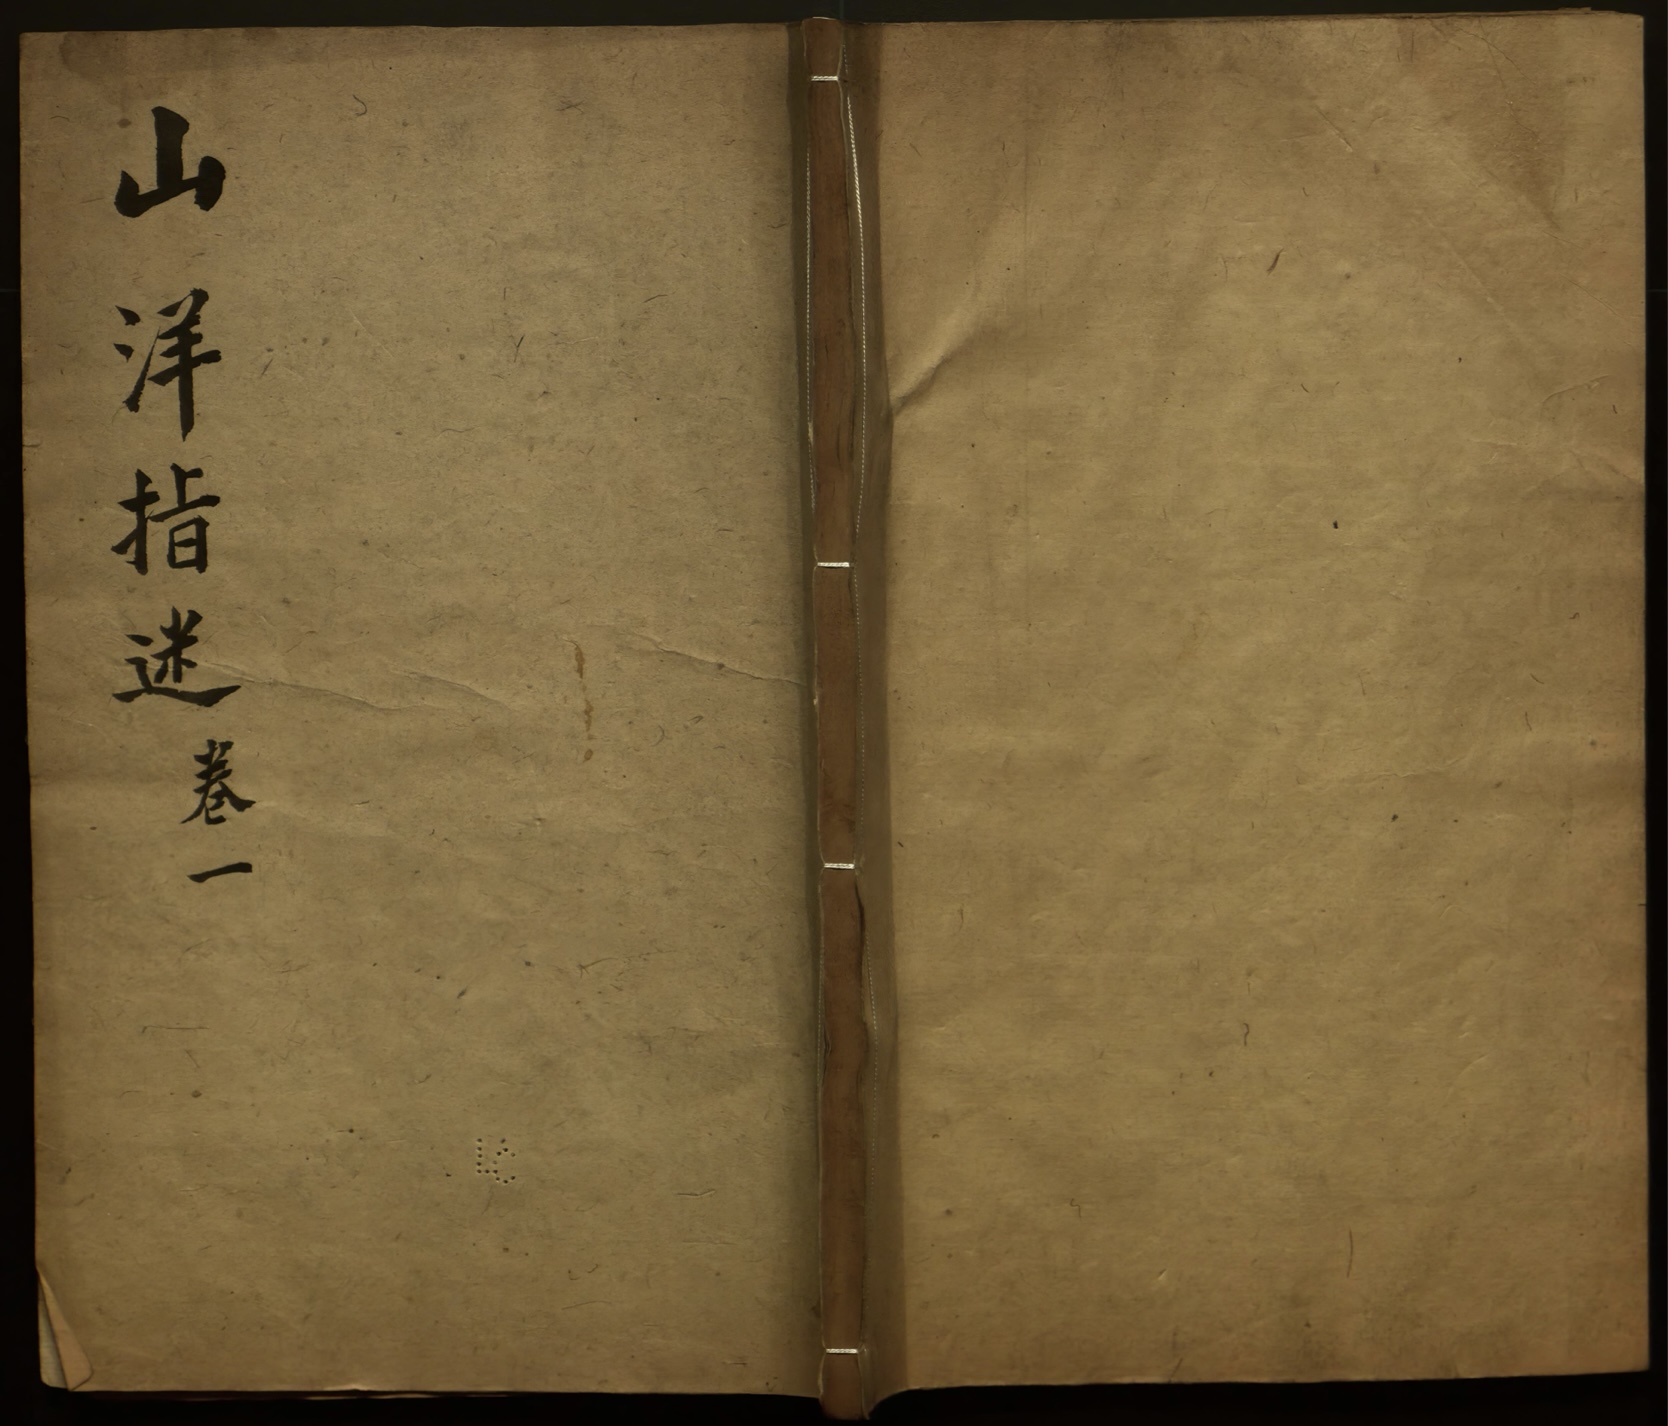 山洋指迷卷一
LC